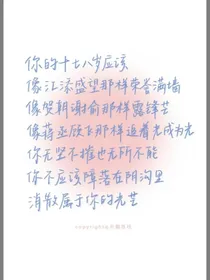 你的十七八岁应该
像江添盛望那样荣誉满墙
像贺朝谢俞那样露锋芒
像蒋丞顾飞那样追着光成为光
你无坚不摧也无所不能
你不应该降落在阴沟里
消散属于你的光芒